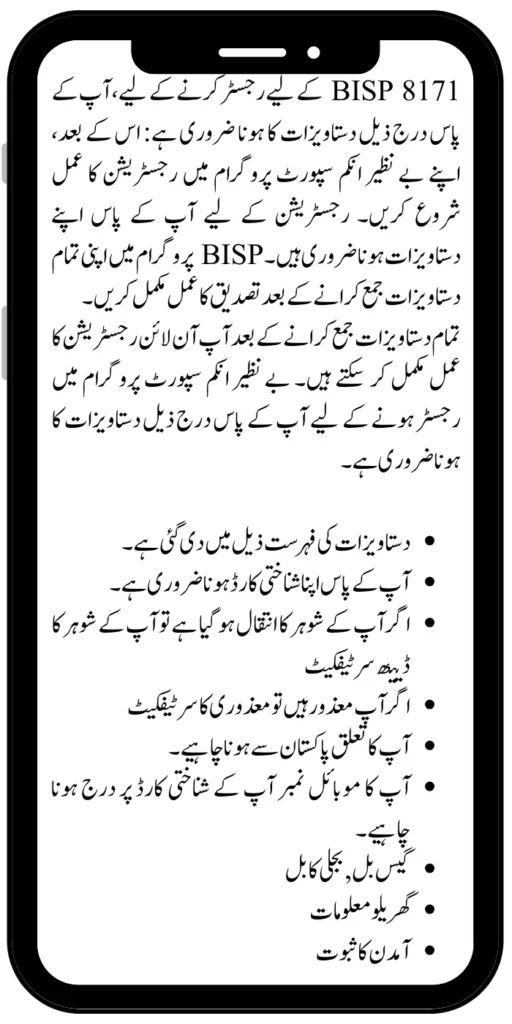 BISP 8171 کے لیے رجسٹر کرنے کے لیے، آپ کے
پاس درج ذیل دستاویزات کا ہونا ضروری ہے: اس کے بعد،
اپنے بے نظیر انکم سپورٹ پروگرام میں رجسٹریشن کا عمل
شروع کریں۔ رجسٹریشن کے لیے آپ کے پاس اپنے
دستاویزات ہونا ضروری ہیں۔ BISP پروگرام میں اپنی تمام
دستاویزات جمع کرانے کے بعد تصدیق کا عمل مکمل کریں۔
تمام دستاویزات جمع کرانے کے بعد آپ آن لائن رجسٹریشن کا
عمل مکمل کر سکتے ہیں۔ بے نظیر انکم سپورٹ پروگرام میں
رجسٹر ہونے کے لیے آپ کے پاس درج ذیل دستاویزات کا
ہونا ضروری ہے۔
• دستاویزات کی فہرست ذیل میں دی گئی ہے۔
• آپ کے پاس اپنا شناختی کارڈ ہونا ضروری ہے۔
• اگر آپ کے شوہر کا انتقال ہو گیا ہے تو آپ کے شوہر کا
ڈیتھ سرٹیفکیٹ
• اگر آپ معذور ہیں تو معذوری کا سرٹیفکیٹ
• آپ کا تعلق پاکستان سے ہونا چاہیے۔
• آپ کا موبائل نمبر آپ کے شناختی کارڈ پر درج ہونا
چاہیے۔
• گیس بل, بجلی کا بل
• گھریلو معلومات
• آمدن کا ثبوت